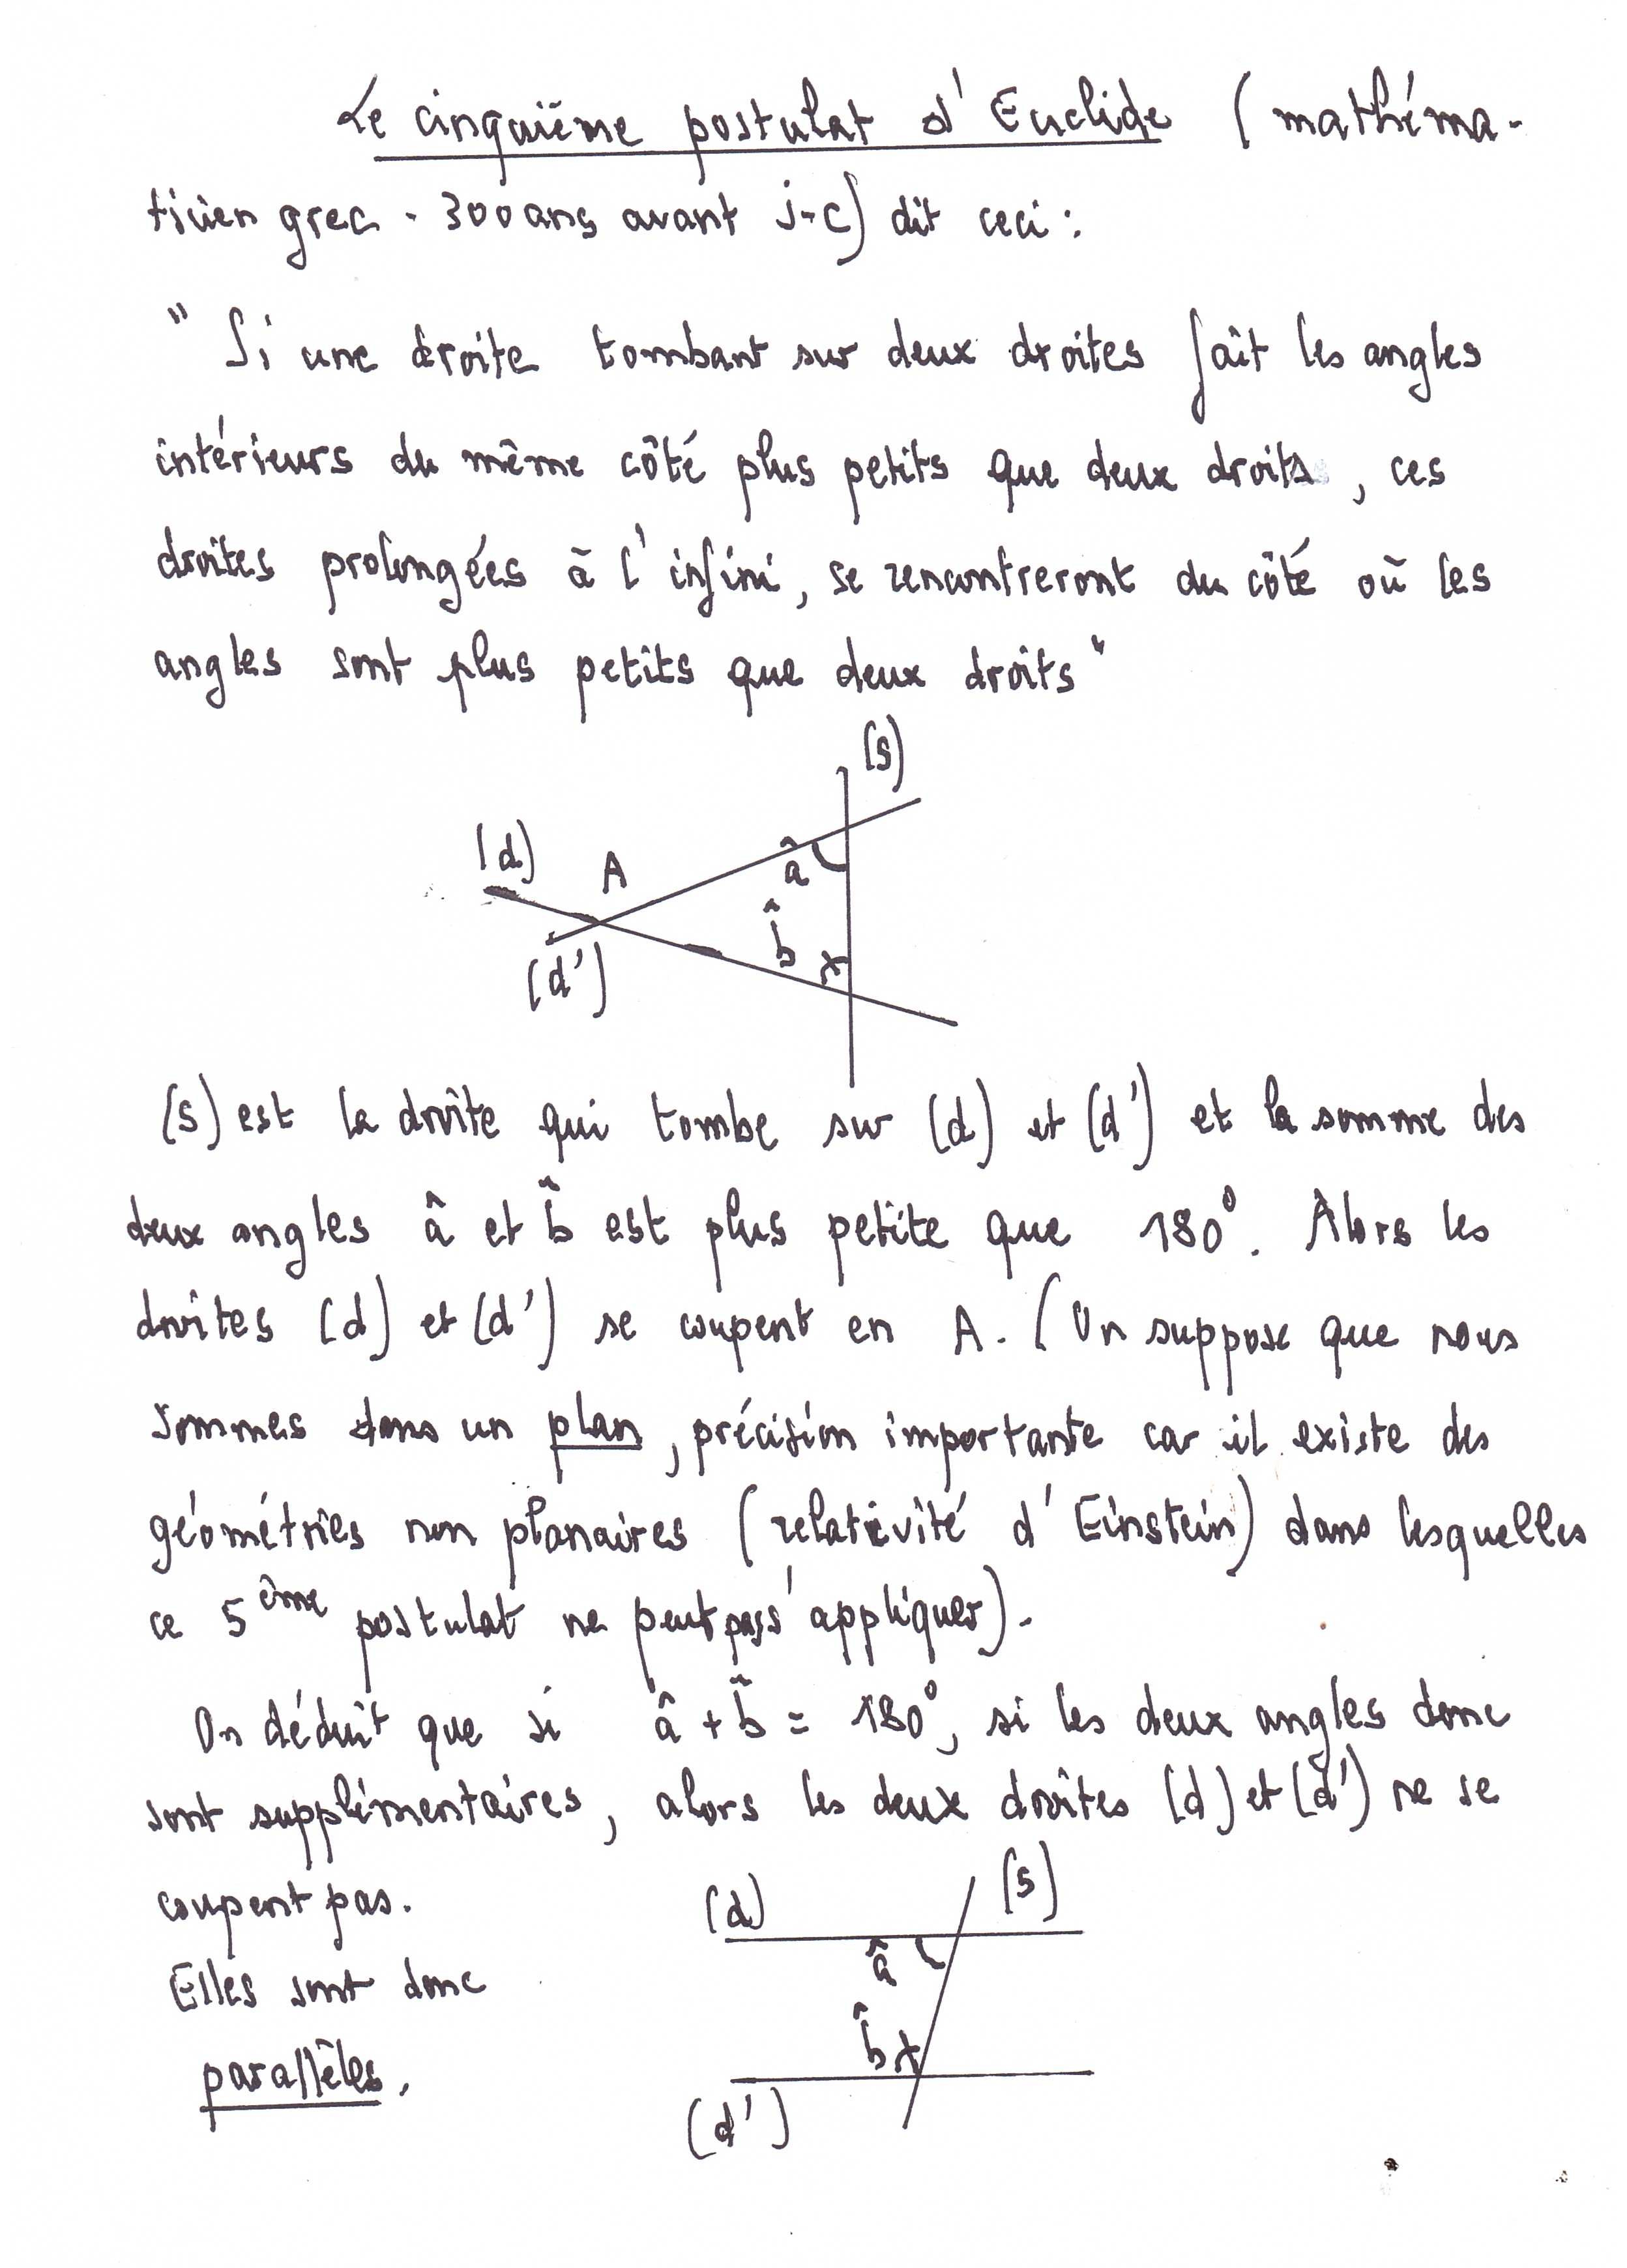 Le cinquième postulat d'Euclide (mathéma-
ticien grec - 300 ans avant j-c) dit ceci :
" Si une droite tombant sur deux droites fait les angles
intérieurs du même côté plus petits que deux droits, ces
droites prolongées à l'infini, se rencontreront du côté où les
angles sont plus petits que deux droits "
(s)
(d) A
â
b̂
(d')
(s) est la droite qui tombe sur (d) et (d') et la somme des
deux angles â et b̂ est plus petite que 180°. Alors les
droites (d) et (d') se coupent en A. (On suppose que nous
sommes dans un plan, précision importante car il existe des
géométries non planaires (relativité d'Einstein) dans lesquelles
ce 5ème postulat ne peut pas s'appliquer).
On déduit que si â + b̂ = 180°, si les deux angles donc
sont supplémentaires, alors les deux droites (d) et (d') ne se
coupent pas.
Elles sont donc
parallèles.
(d) (s)
â
b̂
(d')